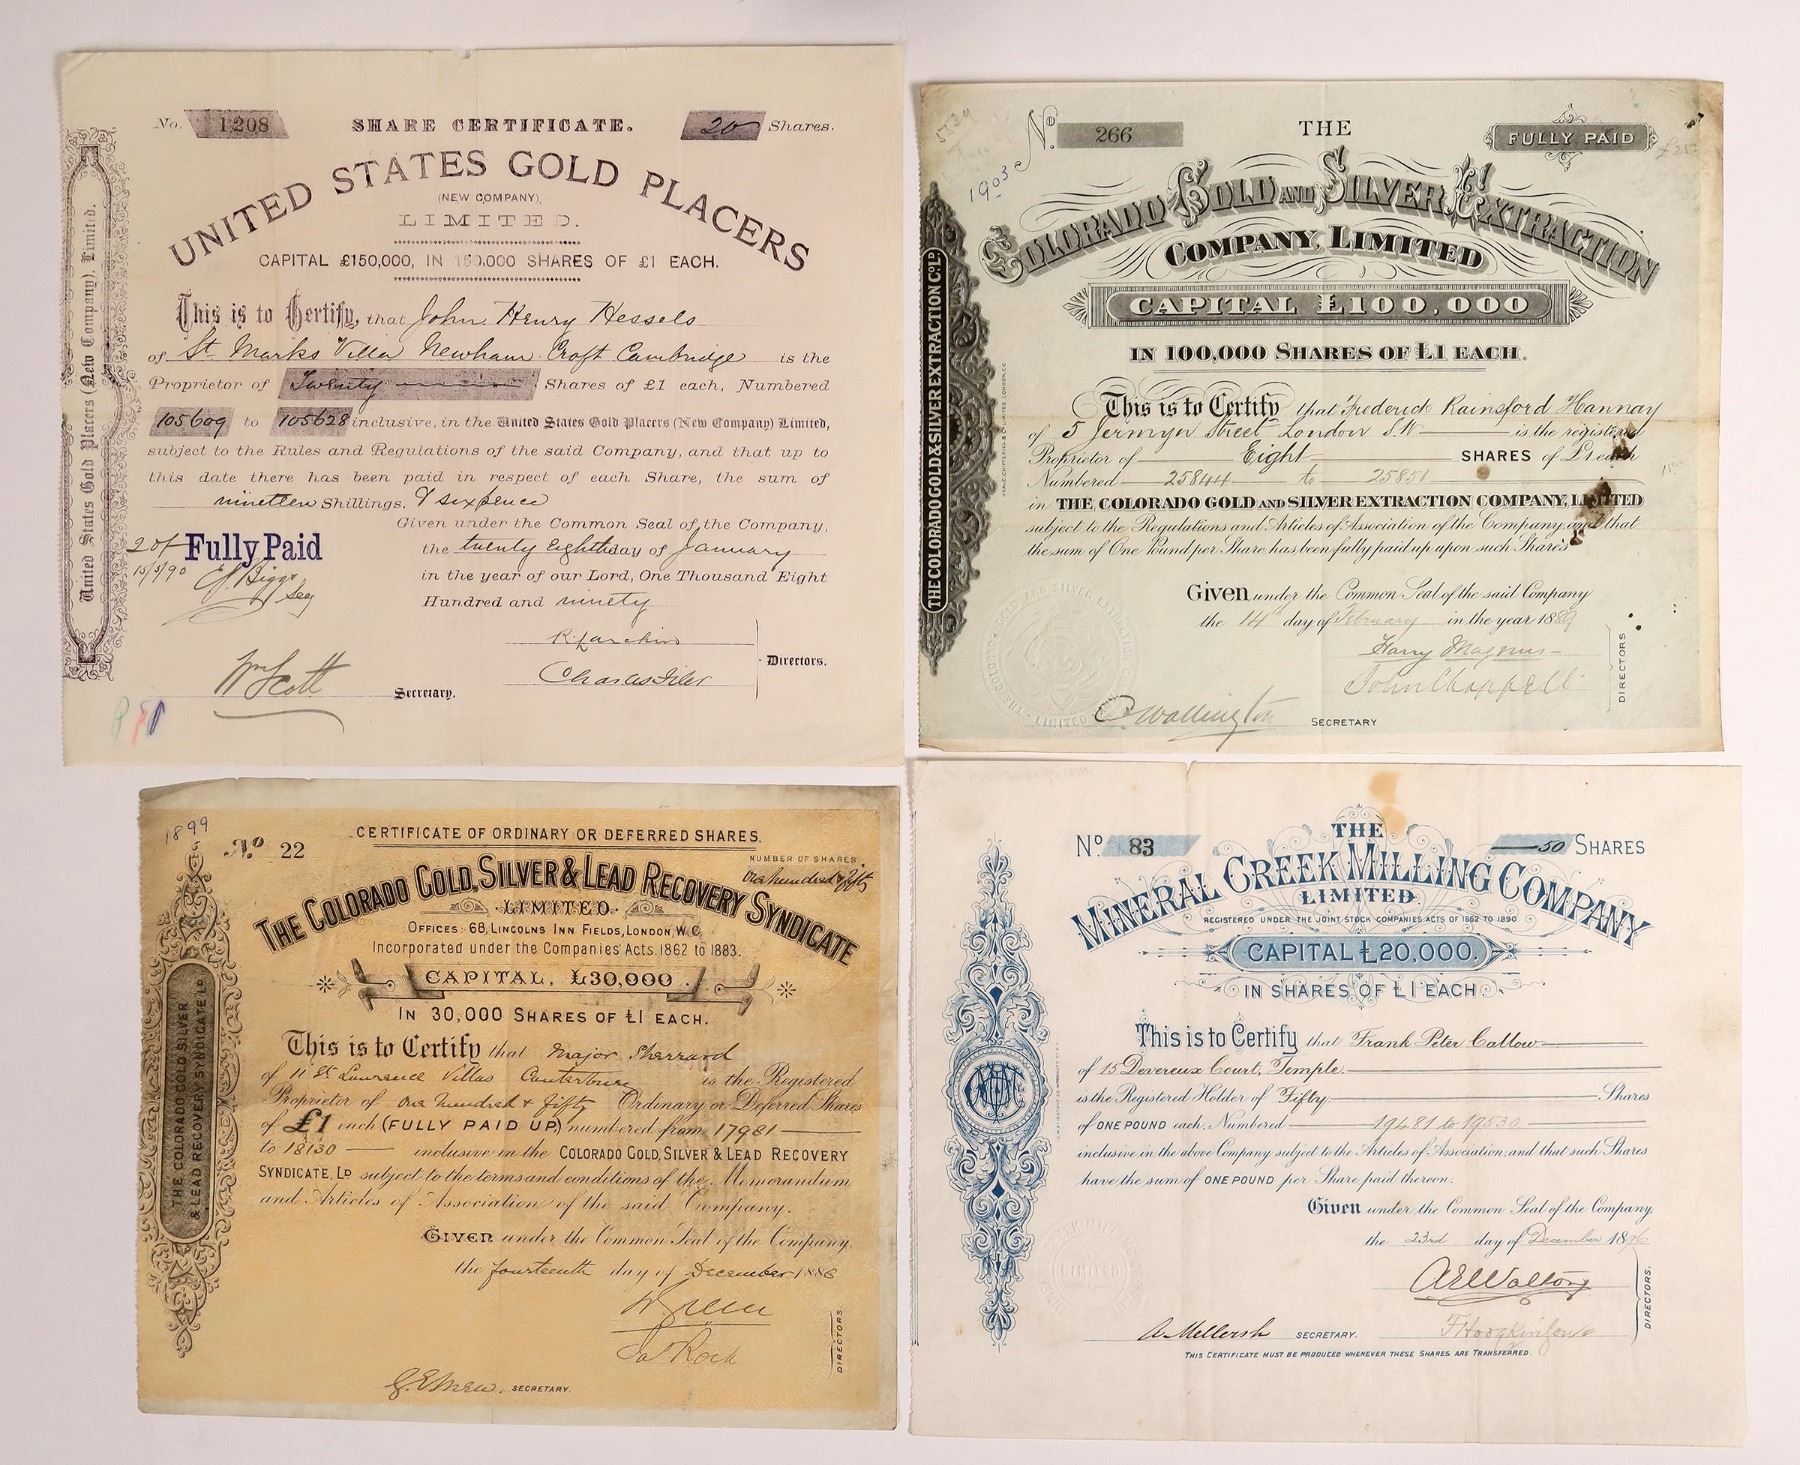 No. 1208 SHARE CERTIFICATE. 20 Shares.
UNITED STATES GOLD PLACERS
(NEW COMPANY),
LIMITED.
CAPITAL £150,000, IN 150,000 SHARES OF £1 EACH.
This is to Certify, that John Henry Hessels
of St. Marks Villa Newham Croft Cambridge is the
Proprietor of Twenty Shares of £1 each, Numbered
105609 to 105628 inclusive, in the United States Gold Placers (New Company) Limited,
subject to the Rules and Regulations of the said Company, and that up to
this date there has been paid in respect of each Share, the sum of
nineteen Shillings. & sixpence
Given under the Common Seal of the Company,
the twenty Eighth day of January
in the year of our Lord, One Thousand Eight
Hundred and ninety
20/- Fully Paid
15/5/90 Biggs
Secy
Directors.
Wm Scott Secretary.
United States Gold Placers (New Company), Limited.
No. 266 THE FULLY PAID
1903
COLORADO GOLD AND SILVER EXTRACTION
COMPANY, LIMITED
CAPITAL £100,000
IN 100,000 SHARES OF £1 EACH.
This is to Certify that Frederick Rainsford Hannay
of 5 Jermyn Street London S.W. is the registered
Proprietor of Eight SHARES of £1 each
Numbered 25844 to 25851
in THE COLORADO GOLD AND SILVER EXTRACTION COMPANY, LIMITED
subject to the Regulations and Articles of Association of the Company, and that
the sum of One Pound per Share has been fully paid up upon such Shares
Given under the Common Seal of the said Company
the 14 day of February in the year 1889
Harry Magnus
John Chappell
DIRECTORS
C. Wallington SECRETARY
THE COLORADO GOLD & SILVER EXTRACTION CO. LD.
1899
CERTIFICATE OF ORDINARY OR DEFERRED SHARES.
No 22
NUMBER OF SHARES.
One hundred & fifty
THE COLORADO GOLD, SILVER & LEAD RECOVERY SYNDICATE
LIMITED.
OFFICES: 68, LINCOLNS INN FIELDS, LONDON, W.C.
Incorporated under the Companies Acts. 1862 to 1883.
CAPITAL, £30,000.
IN 30,000 SHARES OF £1 EACH.
This is to Certify that Major Sherrard
of 11 St Lawrence Villas Canterbury is the Registered
Proprietor of One hundred & fifty Ordinary or Deferred Shares
of £1 each (FULLY PAID UP) numbered from 17981
to 18130 inclusive in the COLORADO GOLD, SILVER & LEAD RECOVERY
SYNDICATE, LD subject to the terms and conditions of the Memorandum
and Articles of Association of the said Company.
GIVEN under the Common Seal of the Company,
the fourteenth day of December 1886
Jas Rock
DIRECTORS.
SECRETARY.
THE COLORADO GOLD SILVER
& LEAD RECOVERY SYNDICATE LD.
No. 83 THE 50 SHARES
MINERAL CREEK MILLING COMPANY
LIMITED.
REGISTERED UNDER THE JOINT STOCK COMPANIES ACTS OF 1862 TO 1890.
CAPITAL £20,000.
IN SHARES OF £1 EACH.
This is to Certify that Frank Peter Callow
of 15 Devereux Court, Temple.
is the Registered Holder of Fifty Shares
of ONE POUND each, Numbered 19481 to 19530
inclusive in the above Company subject to the Articles of Association, and that such Shares
have the sum of ONE POUND per Share paid thereon.
Given under the Common Seal of the Company,
the 23rd day of December 1896
DIRECTORS.
A. Mellersh SECRETARY.
THIS CERTIFICATE MUST BE PRODUCED WHENEVER THESE SHARES ARE TRANSFERRED.